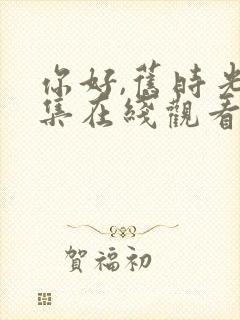 你好,舊時光
集在綫觀看
賀福初